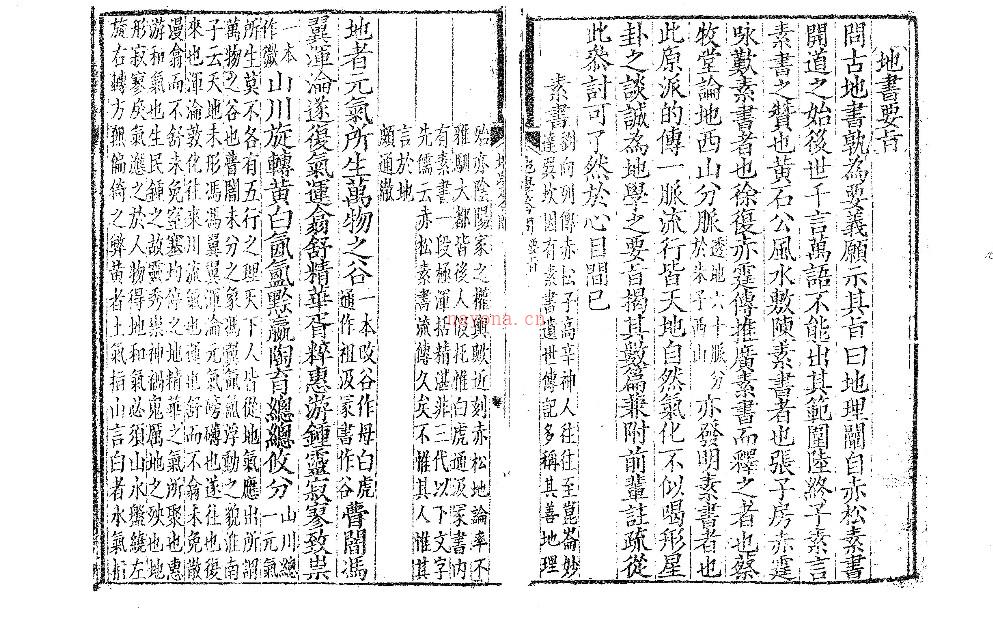 地書要旨
問古地書孰為要義願示其旨曰地理闢自赤松素書
開道之始後世千言萬語不能出其範圍陸終子素言
素書之贊也黃石公風水敷陳素書者也張子房赤霆
咏歎素書者也徐復赤霆傳推廣素書而釋之者也蔡
牧堂論地西山分脈透地六十脈分於朱子西山亦發明素書者也
此原派的傳一脈流行皆天地自然氣化不似喝形星
卦之談誠為地學之要旨揭其數篇兼附前輩註疏從
此叅討可了然於心目間已
素書劉向列傳赤松子高辛神人往往至崑崙妙
達要坎因有素書遺世傳記多稱其善地理
殆亦陰陽家之權輿歟近刻赤松地論率不
雅馴大都皆後人假托惟白虎通汲冡書內
有素書一段極渾括精湛非三代以下文字
先儒云赤松素書流傳久矣不惟其人惟其
言於地
頗通徹
地者元氣所生萬物之谷一本改谷作母白虎通作祖汲冡書作谷瞢闇馮
翼渾淪遂復氣運翕舒精華胥粹惠游鍾靈寂寥致祟
一本作嶽山川旋轉黃白氤氳黙嬴陶育總總攸分山川總一元氣
所生莫不各有五行之理天下人皆從地氣應出所謂
萬物之谷也瞢闇未分之象馮翼氤氳浮動之貌淮南
子云天地未形馮馮翼翼渾淪元氣磅礴也遂往也復
來也渾淪敦化往來川流氣化運也舒而不翕未免散
漫翕而不舒未免窒塞均停之地精華之氣所聚也惠
游和氣也生民鍾之故靈秀崇神禍鬼厲地之殃也地
形寂寥戾氣應之於人物得地和氣必須山水盤繞左
旋右轉方無偏倚之弊黃者土氣指山言白者水氣指
nayona.cn